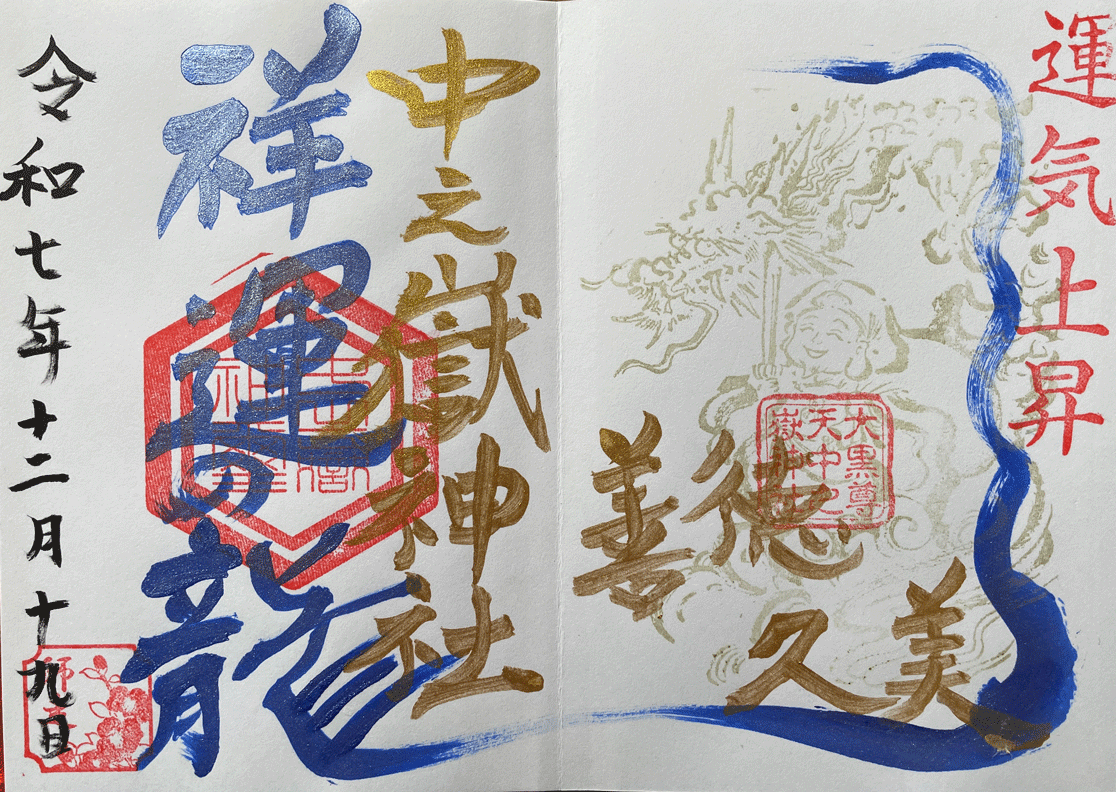 運気上昇
美
久
徳
善
大黒尊
天中之
嶽神社
中之嶽神社
祥運の龍
令和七年十二月十九日